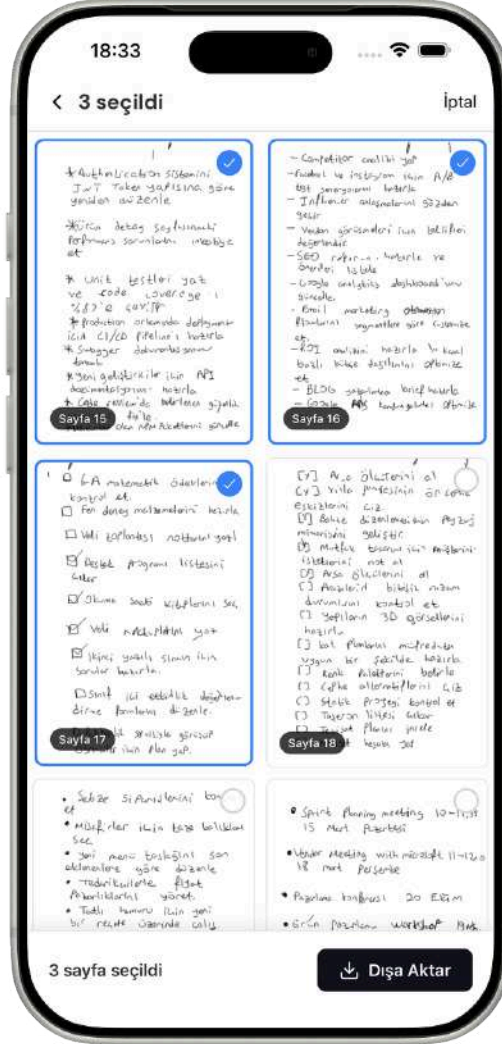 18:33
3 seçildi
İptal
* Authentication sistemini
JWT Token yapısına göre
yeniden düzenle
* Ürün detay sayfasındaki
performans sorunlarını
et
* Unit testleri yaz
ve code coverage i
* Production ortamında deployment
için CI/CD pipeline'ı hazırla
* Swagger dokümantasyonunu
* Yeni geliştiriciler için API
dokümantasyonu hazırla
* Code review'da belirlenen
Sayfa 15
- Competitor analizi yap
- Facebook ve instagram için A/B
test senaryoları hazırla
- Influencer anlaşmalarını gözden
geçir
- Vendor görüşmeleri için teklifleri
değerlendir
- SEO raporunu hazırla ve
önerileri listele
- Google analytics dashboard'unu
güncelle.
- Email marketing
planlarını segmentlere göre customize
et.
- ROI analizini hazırla
bazlı bütçe dağılımını optimize
et
- BLOG yayınları brief hazırla
- Google optimize
Sayfa 16
6A matematik ödevlerini
kontrol et.
Fen deney malzemelerini hazırla
Veli toplantısı notlarını yaz
Destek programı listesini
Okuma saati kitaplarını seç
Veli mektuplarını yaz
İkinci yazılı sınavı için
sorular hazırla.
Sınıf içi etkinlik
formlarını düzenle.
görüşüp
için plan yap.
Sayfa 17
[✓] Arsa ölçülerini al
[✓] Villa projesinin ön cephe
eskizlerini çiz
Bahçe düzenlemesi için peyzaj
mimarisini geliştir
Mutfak tasarımı için müşterinin
isteklerini not al
Arsa ölçülerini al
[ ] Arazilerin bitişik nizam
durumlarını kontrol et
[ ] Yapıların 3D görsellerini
hazırla
[ ] Kat planlarını müfredata
uygun bir şekilde hazırla
[ ] Renk paletlerini belirle
[ ] Cephe alternatiflerini çiz
[ ] Statik projeyi kontrol et
[ ] Taşeron listesi çıkar
[ ] Tesisat planını incele
hesabı yap
Sayfa 18
• Sebze siparişlerini
et
• Misafirler için taze balıkları
seç
• Yeni menü taslağını son
eklemelere göre düzenle
• Tedarikçilerle fiyat
pazarlıklarını yönet.
• Tatlı menüsü için yeni
bir reçete üzerinde çalış
• Sprint Planning meeting
15 Mart Pazartesi
• Vendor Meeting with microsoft
18 mart Perşembe
• Pazarlama konferansı 20 Ekim
• Ürün Pazarlama Workshop
3 sayfa seçildi
Dışa Aktar